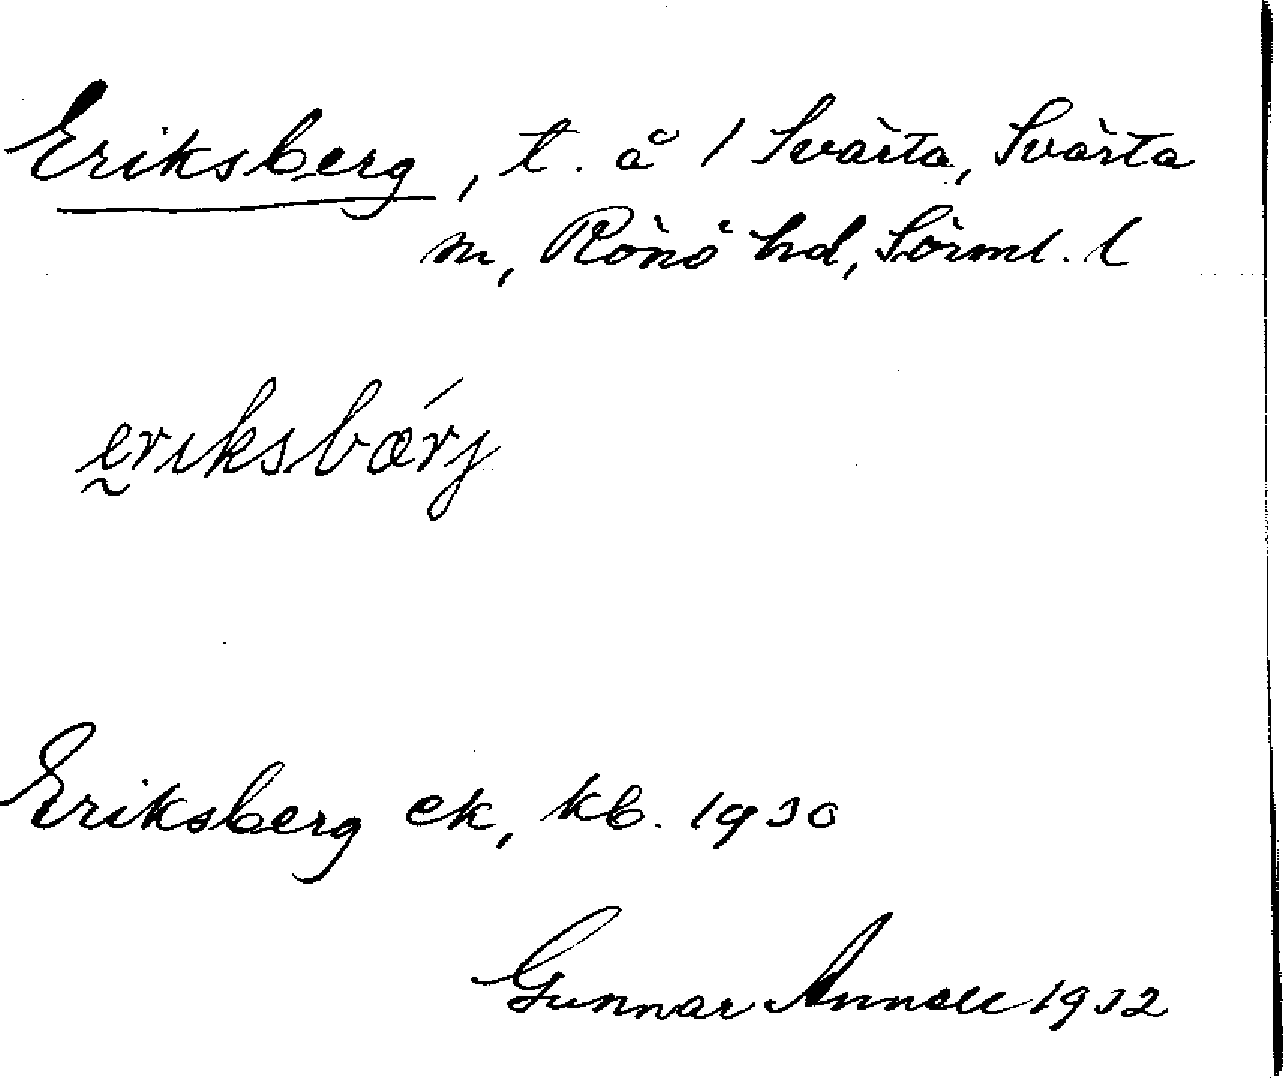 Eriksberg, t. å 1 Svärta, Svärta
sn, Rönö hd, Sörml. l
eriksbærj
Eriksberg ek, kb. 1930
Gunnar Annell 1932